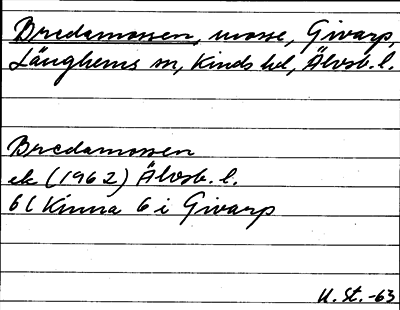 Bredamossen, mosse, Givarp,
Länghems sn, Kinds hd, Älvsb. l.
Bredamossen
ek (1962) Älvsb. l.
6 l Kinna 6 i Givarp
U. St. -63